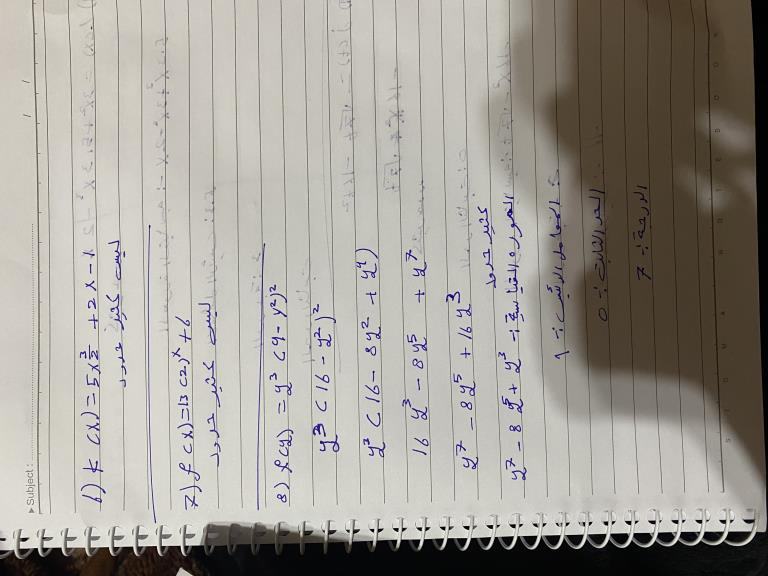 ▸Subject :
6) K (x) = 5x^3/2 + 2x - 1
ليست كثير حدود
7) f (x) = 13(2)^x + 6
ليست كثير حدود
8) f(y) = y^3 (4 - y^2)^2
y^3 (16 - y^2)^2
y^3 (16 - 8y^2 + y^4)
16y^3 - 8y^5 + y^7
y^7 - 8y^5 + 16y^3
كثير حدود
y^7 - 8y^5 + y^3 الصورة القياسية :-
المعامل الرئيس :- ١
الحد الثابت :- ٥
الدرجة :- 7